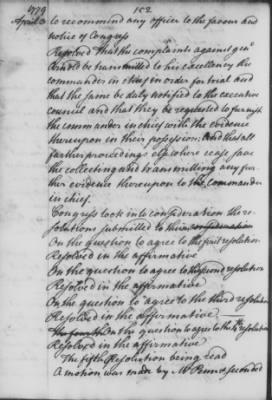 1779 152
April 3 to recommend any officer to the favour and
notice of Congress
Resolved That the complaints against genl
Arnold be transmitted to his excellency the
commander in chief in order for trial and
that the same be duly notified to the executive
council and that they be requested to furnish
the commander in chief with the evidence
thereupon in their possession; And that all
farther proceedings elsewhere cease save
the collecting and transmitting any fur-
ther evidence thereupon to the commander
in chief.
Congress took into consideration the re-
solutions submitted to them consideration
On the question to agree to the first resolution
Resolved in the affirmative
On the question to agree to the second resolution
Resolved in the affirmative
On the question to agree to the third resolution
Resolved in the affirmative
The fourth On the question to agree to the 4th resolution
Resolved in the affirmative
The fifth Resolution being read
A motion was made by Mr Penn seconded